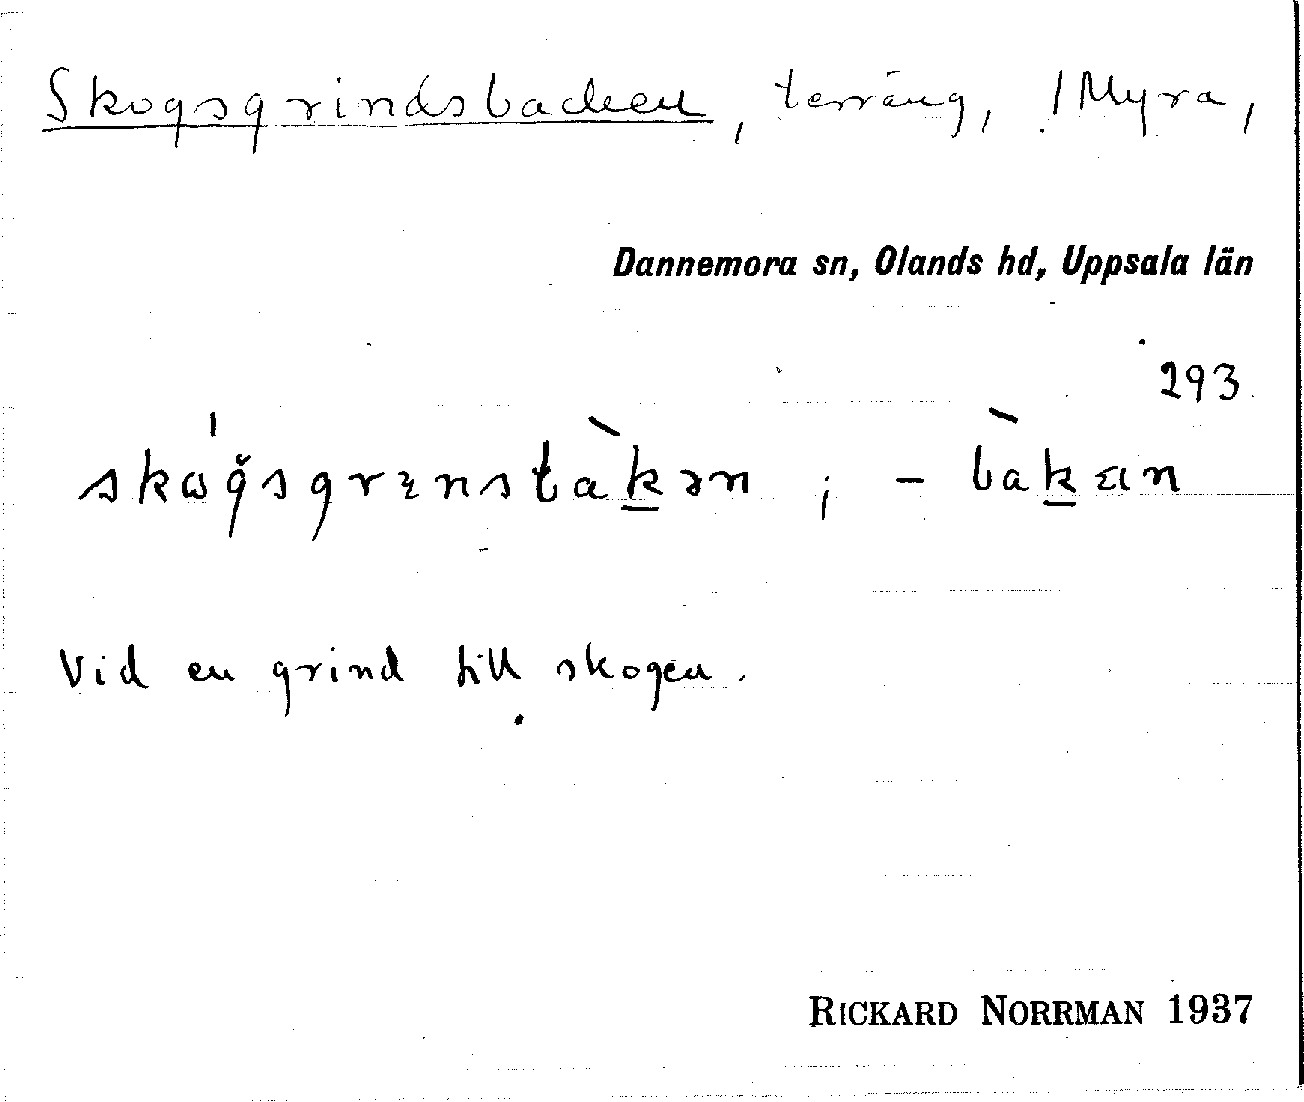 Skogsgrindsbacken, terräng, /Myra,
Dannemora sn, Olands hd, Uppsala län
293
; -
Vid en grind till skogen.
RICKARD NORRMAN 1937